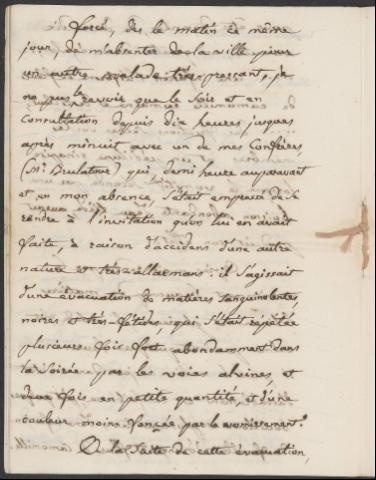 forcé, dès le matin ce même
jour, de m'absenter de la ville pour
un autre malade très pressant, je
ne pus le revoir que le soir et en
Consultation depuis dix heures jusques
après minuit avec un de mes Confrères,
(Mr. Brulatour) qui, demi heure auparavant
et en mon absence, s'était empressé de se
rendre à l'invitation qu'on lui en avait
faite, à raison d'accidens d'une autre
nature et très allarmans: il s'agissait
d'une évacuation de matières sanguinolentes,
noires et très fétides, qui s'était répétée
plusieurs fois fort abondamment dans
la soirée par les voies alvines, et
deux fois en petite quantité et d'une
couleur moins foncée par le vomissement.
A la suite de cette évacuation,